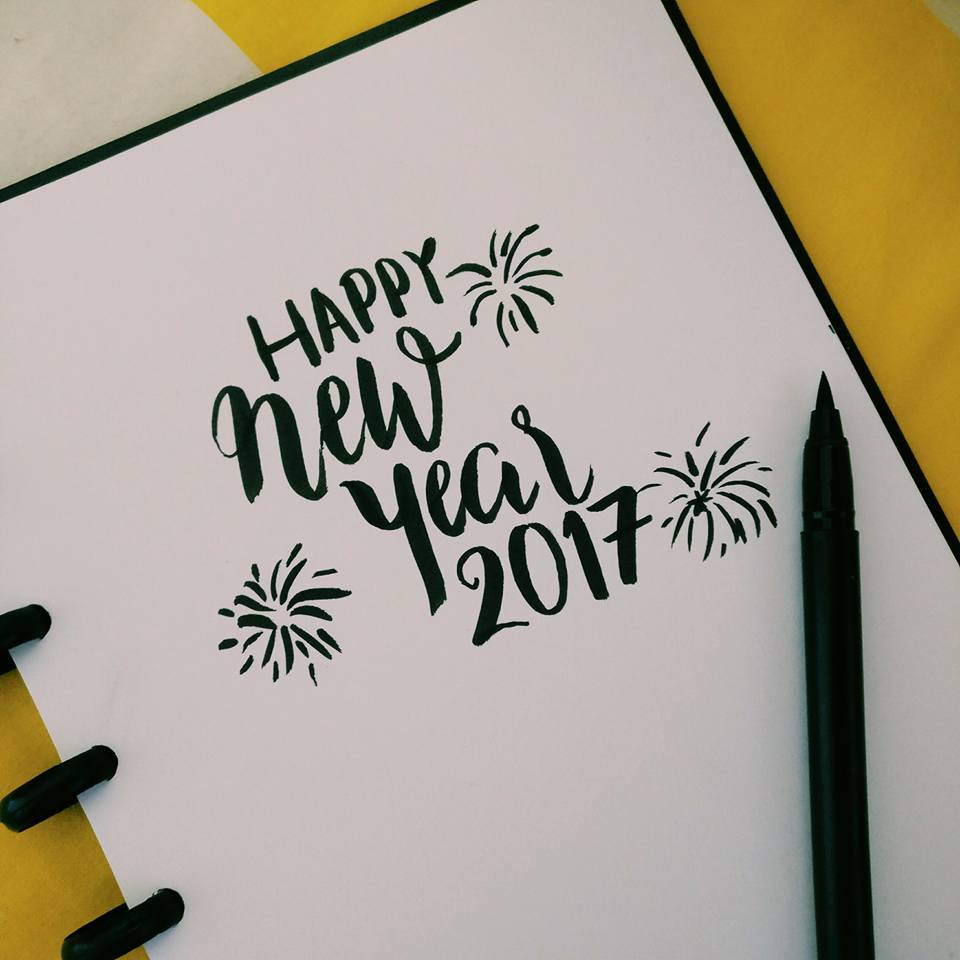 HAPPY
new
year
2017